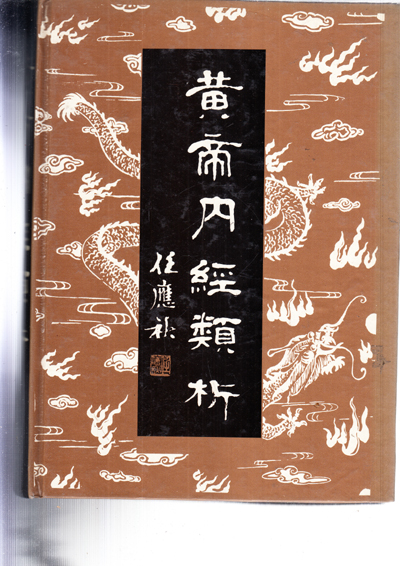 黄帝内經類析
任應秋